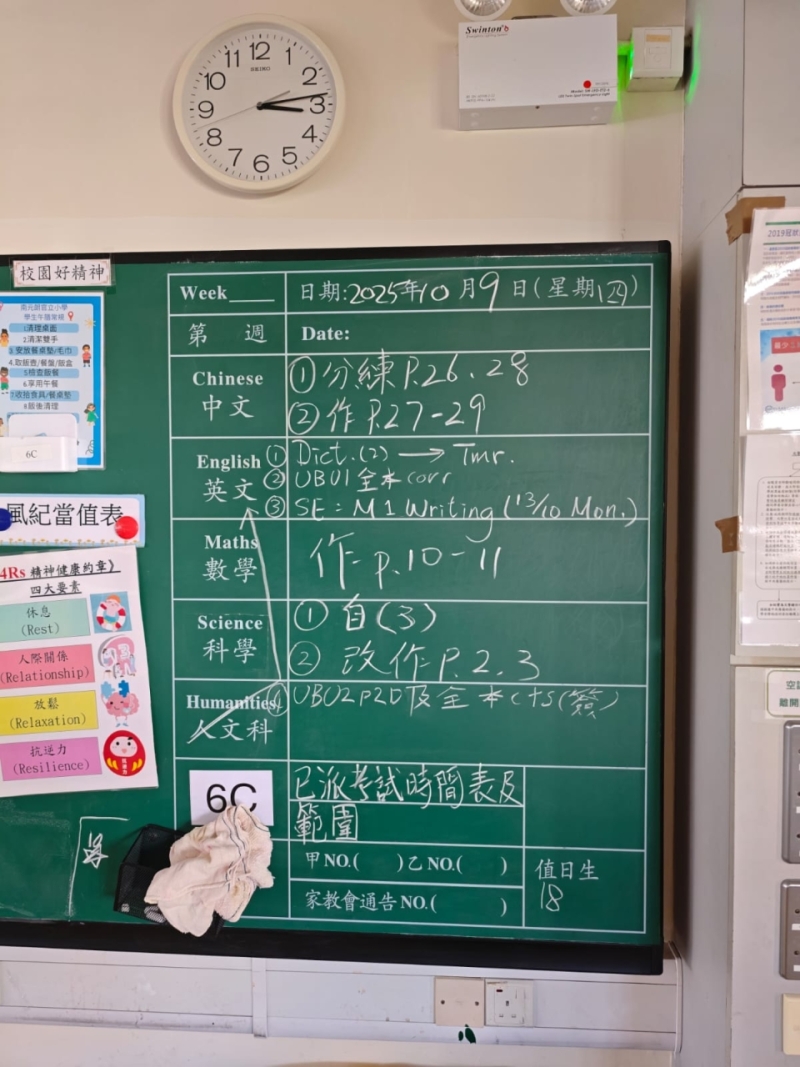 12
1
2
3
4
5
6
7
8
9
10
11
SEIKO
Swinton
校園好精神
學生午膳常規
1清理桌面
2.清潔雙手
3.安放餐桌墊/毛巾
4.取飯壺/餐盤/飯盒
5檢查飯餐
6.享用午餐
7收拾食具/餐桌墊
8.飯後清理
6C
風紀當值表
4Rs 精神健康約章)
四大要素
休息
(Rest)
人際關係
(Relationship)
放鬆
(Relaxation)
抗逆力
(Resilience)
Week____ 日期:2025年10月9日(星期四)
第 週 Date:
Chinese ①分練 P.26、28
中文 ②作 P.27-29
English ① Dict.(2) → Tmr.
英文 ② UB U1 全本 corr
③ SE: M1 Writing (13/10 Mon.)
Maths
數學 作: p.10-11
Science ① 自(3)
科學 ② 改作 P.2、3
Humanities ④ UB U2 P20 及全本 cts(簽)
人文科
6C 已派考試時間表及
範圍
甲NO.( )乙NO.( )
家教會通告NO.( )
值日生
18